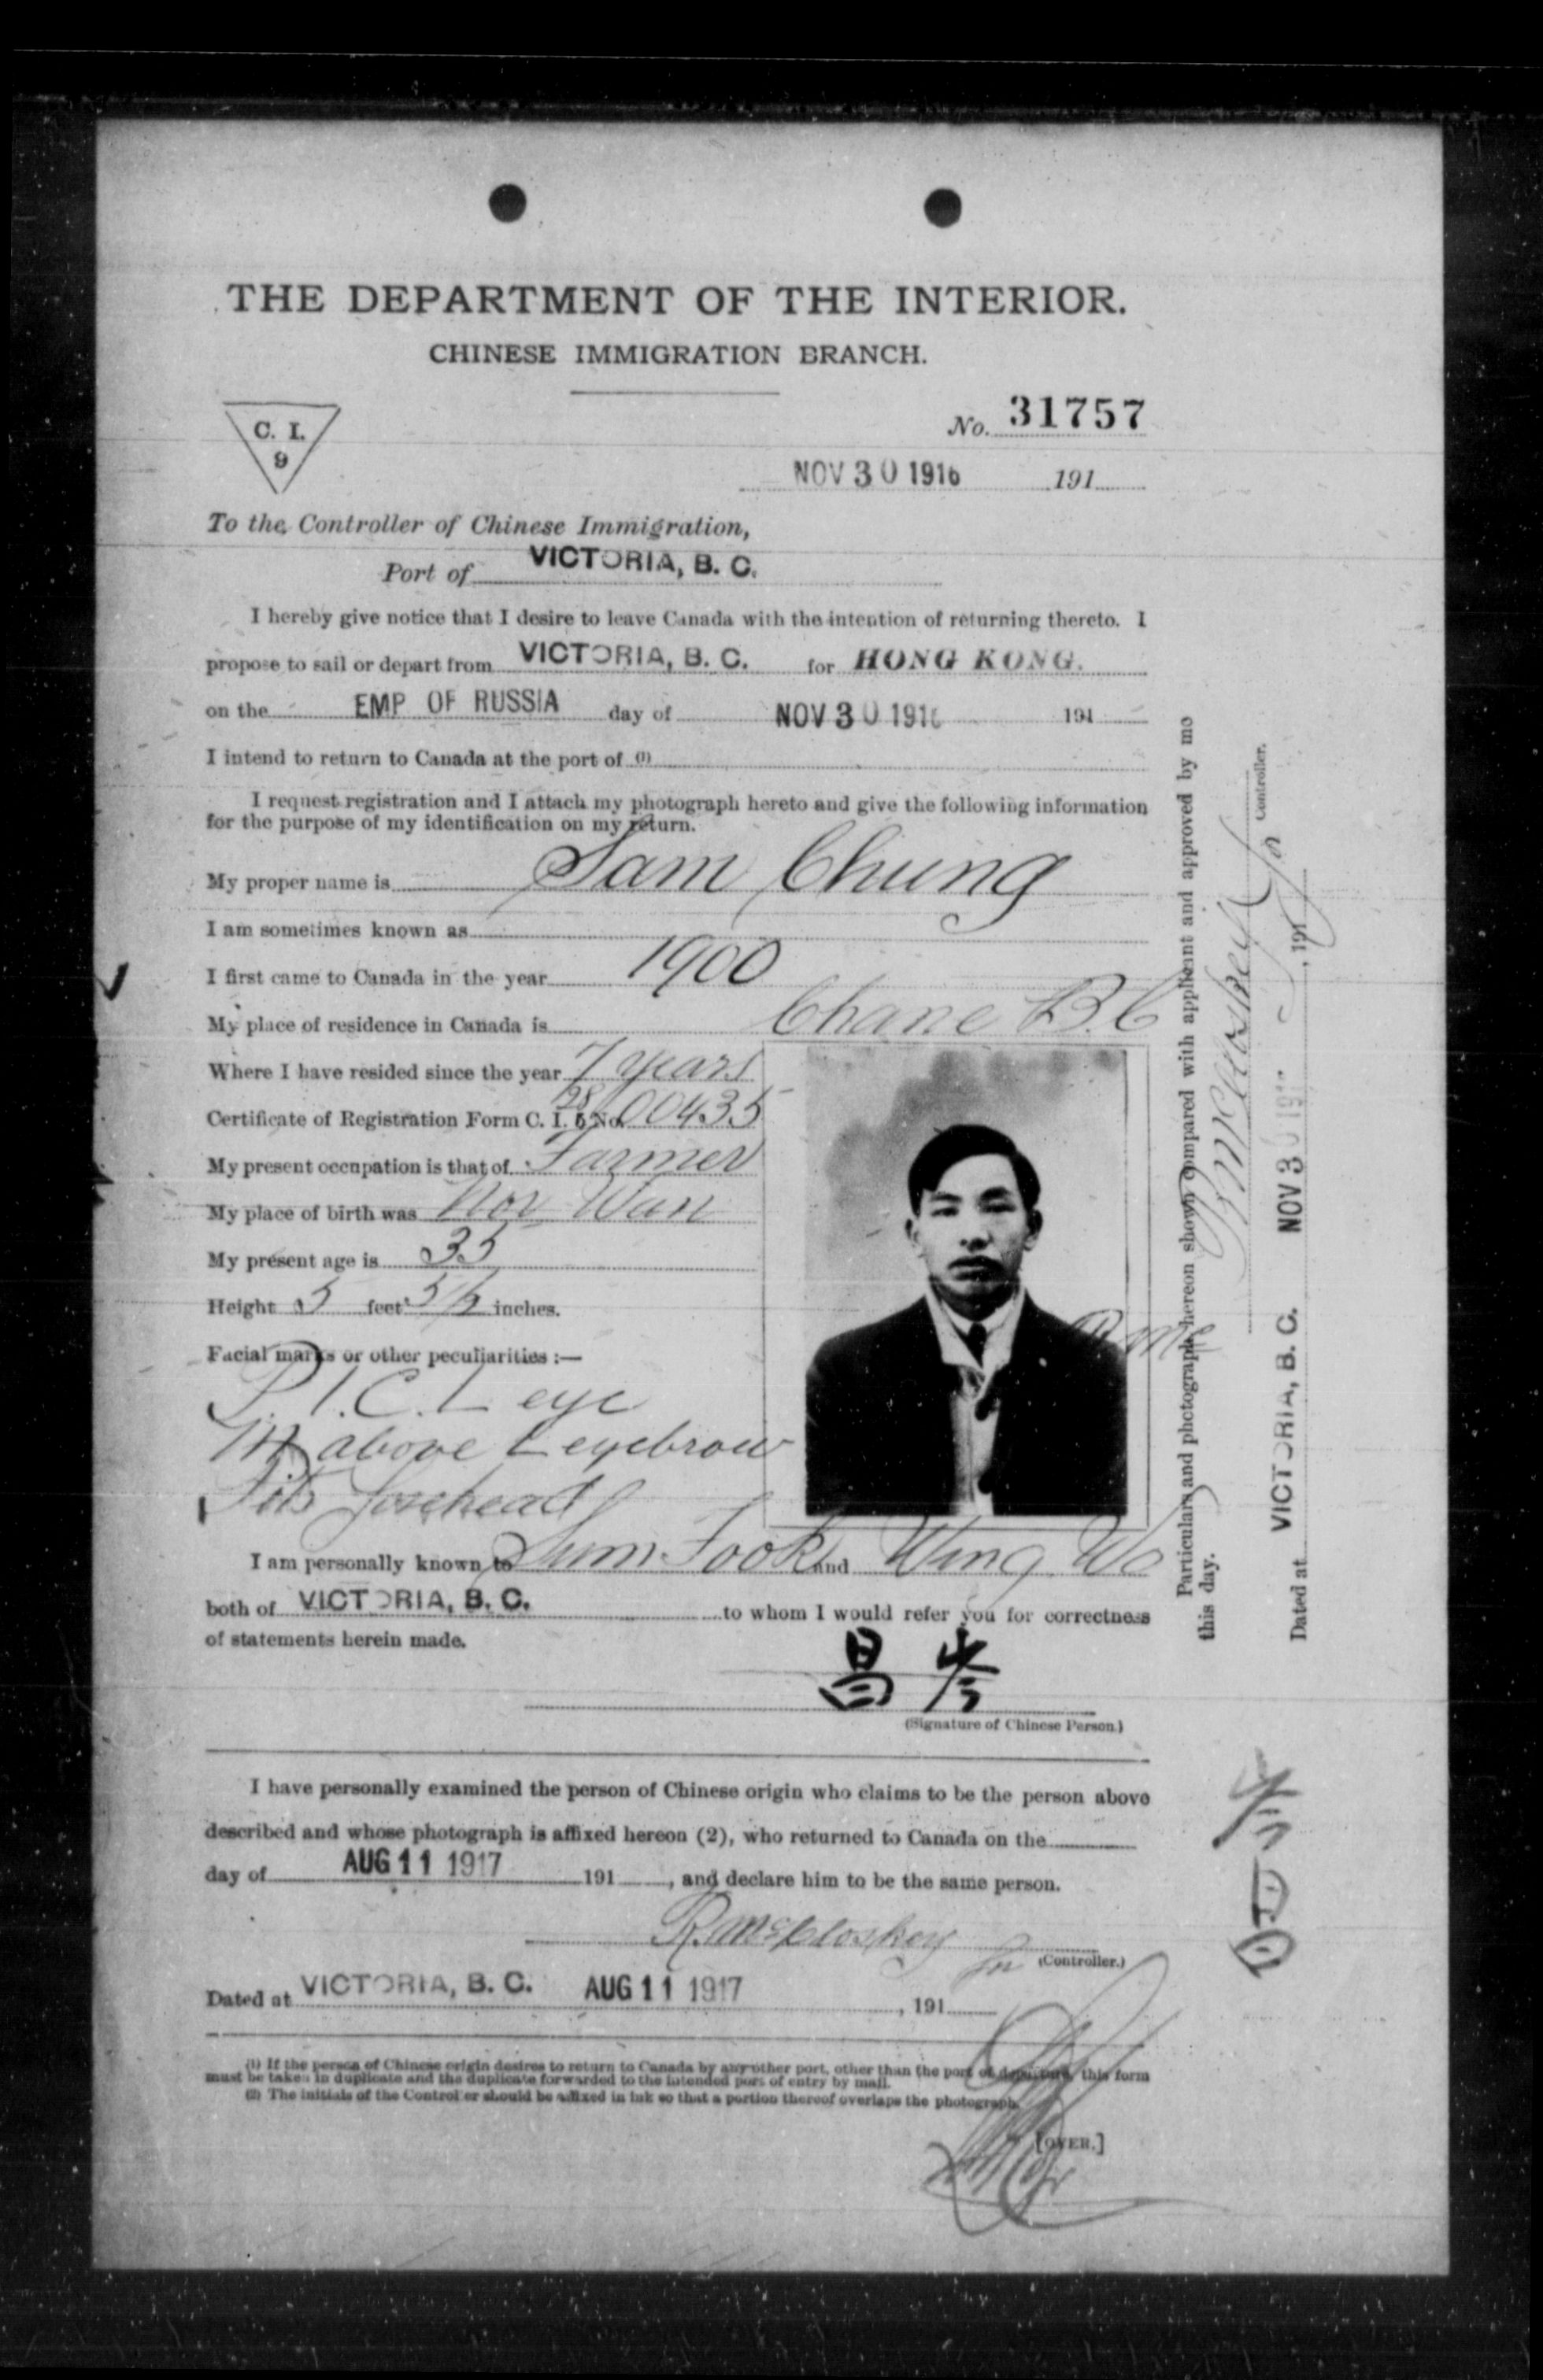 THE DEPARTMENT OF THE INTERIOR.
CHINESE IMMIGRATION BRANCH.
C. I.
9
No. 31757
NOV 30 1916 191
To the Controller of Chinese Immigration,
Port of VICTORIA, B. C.
I hereby give notice that I desire to leave Canada with the intention of returning thereto. I
propose to sail or depart from VICTORIA, B. C. for HONG KONG.
on the EMP OF RUSSIA day of NOV 30 1916 191
I intend to return to Canada at the port of (1)
I request registration and I attach my photograph hereto and give the following information
for the purpose of my identification on my return.
My proper name is Sam Chung
I am sometimes known as
I first came to Canada in the year 1900
My place of residence in Canada is Chase B.C
Where I have resided since the year 7 years
Certificate of Registration Form C. I. 5 No. 00435
My present occupation is that of Farmer
My place of birth was Hoy Wan
My present age is 35
Height 5 feet 5½ inches.
Facial marks or other peculiarities :—
P. I. C. L eye
M above L eyebrow
Pits forehead
I am personally known to Sum Fook and Wing Wo
both of VICTORIA, B. C. to whom I would refer you for correctness
of statements herein made.
昌岑
(Signature of Chinese Person)
I have personally examined the person of Chinese origin who claims to be the person above
described and whose photograph is affixed hereon (2), who returned to Canada on the
day of AUG 11 1917 191 , and declare him to be the same person.
R. McCloskey for
(Controller.)
Dated at VICTORIA, B. C. AUG 11 1917 , 191
(1) If the person of Chinese origin desires to return to Canada by any other port, other than the port of departure, this form
must be taken in duplicate and the duplicate forwarded to the intended port of entry by mail.
(2) The initials of the Controller should be affixed in ink so that a portion thereof overlaps the photograph.
[OVER.]
Particulars and photograph hereon shown compared with applicant and approved by me
this day.
R McCloskey for Controller.
Dated at VICTORIA, B. C. NOV 30 191 , 191
岑昌